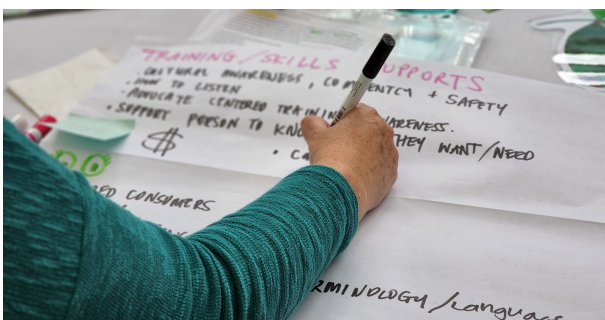 TRAINING/SKILLS SUPPORTS
• CULTURAL AWARENESS, COMPETENCY + SAFETY
• HOW TO LISTEN
• ADVOCATE CENTERED TRAINING AWARENESS.
• SUPPORT PERSON TO KNOW THEY WANT/NEED
$
CONSUMERS
/Language